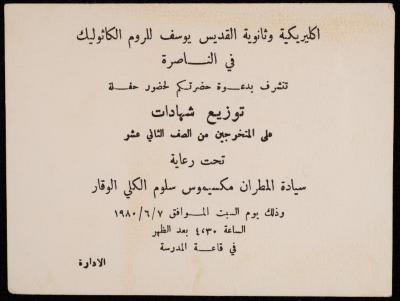 اكليريكية وثانوية القديس يوسف للروم الكاثوليك
في الناصرة
تتشرف بدعوة حضرتكم لحضور حفلة
توزيع شهادات
على المتخرجين من الصف الثاني عشر
تحت رعاية
سيادة المطران مكسيموس سلوم الكلي الوقار
وذلك يوم السبت الموافق ١٩٨٠/٦/٧
الساعة ٤،٣٠ بعد الظهر
في قاعة المدرسة
الادارة